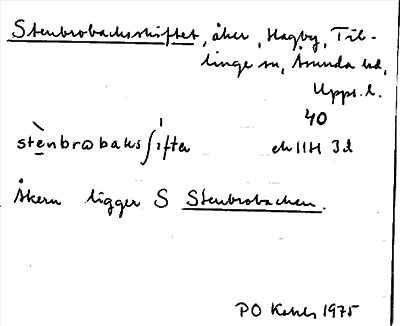 Stenbrobacksskiftet, åker, Hagby, Til-
linge sn, Åsunda hd,
Upps. l.
40
stènbrωbaksʃìfta
Åkern ligger S Stenbrobacken.
PO 1975